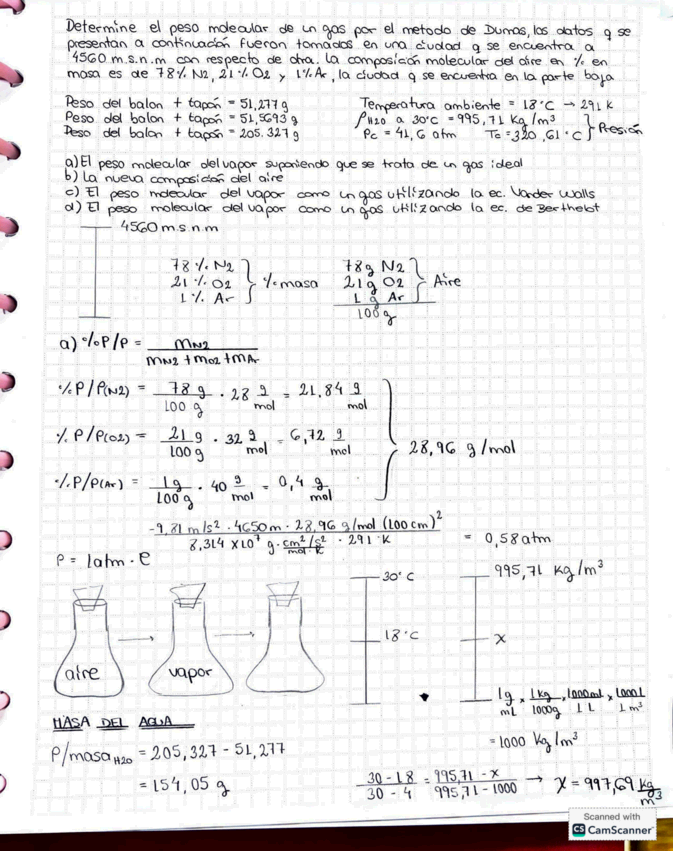 Determine el peso molecular de un gas por el metodo de Dumas, los datos q se
presentan a continuación fueron tomados en una ciudad q se encuentra a
4560 m.s.n.m con respecto de otra. La composición molecular del aire en % en
masa es de 78% N2, 21% O2 y 1% Ar, la ciudad q se encuentra en la parte baja
Peso del balon + tapón = 51,277g Temperatura ambiente = 18°C → 291 K
Peso del balon + tapón = 51,5693 g ρH2O a 30°C = 995,71 Kg/m³
Peso del balon + tapón = 205.327g Pc = 41,6 atm Tc = 320,61°C } Presión
a) El peso molecular del vapor suponiendo que se trata de un gas ideal
b) La nueva composición del aire
c) El peso molecular del vapor como un gas utilizando la ec. Vander Walls
d) El peso molecular del vapor como un gas utilizando la ec. de Berthelot
4560 m.s.n.m
78% N2
21% O2
1% Ar } % masa
78g N2
21g O2
1g Ar } Aire
100g
a) %P/P = mN2 / mN2 + mO2 + mAr
% P/P(N2) = 78 g / 100 g · 28 g/mol = 21,84 g/mol
% P/P(O2) = 21 g / 100 g · 32 g/mol = 6,72 g/mol
% P/P(Ar) = 1 g / 100 g · 40 g/mol = 0,4 g/mol
} 28,96 g/mol
P = 1atm · e^ -9,81 m/s² · 4650m · 28,96 g/mol (100 cm)² / 8,314 x10⁷ g · cm²/s² / mol·K · 291 K = 0,58atm
aire → vapor →
30°C 995,71 Kg/m³
18°C x
1g/mL x 1kg/1000g x 1000ml/1L x 1000L/1m³
= 1000 Kg/m³
MASA DEL AGUA
P/masa H2O = 205,327 - 51,277
= 154,05 g
30 - 18 / 30 - 4 = 995,71 - x / 995,71 - 1000 → x = 997,69 Kg/m³
Scanned with
CS CamScanner